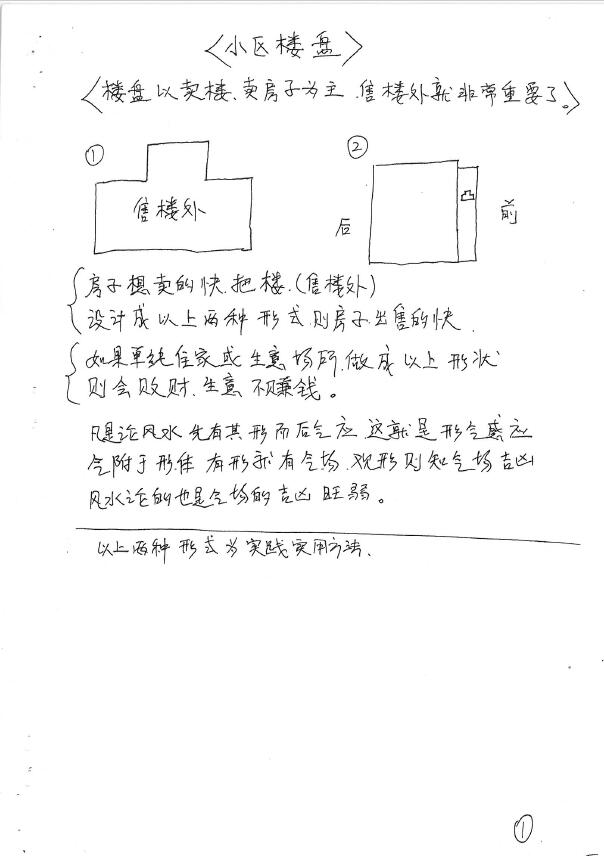 〈小区楼盘〉
〈楼盘以卖楼、卖房子为主、售楼处就非常重要了。〉
① ②
售楼处
后 前
房子想卖的快、把楼、(售楼处)
设计成以上两种形式则房子出售的快、
如果单纯住家或生意场所、做成以上形状
则会败财、生意不赚钱。
凡是论风水先有其形而后气应 这就是形气感应
气附于形体 有形就有气场、观形则知气场吉凶
风水论的也是气场的吉凶旺弱。
以上两种形式为实践实用方法、
①